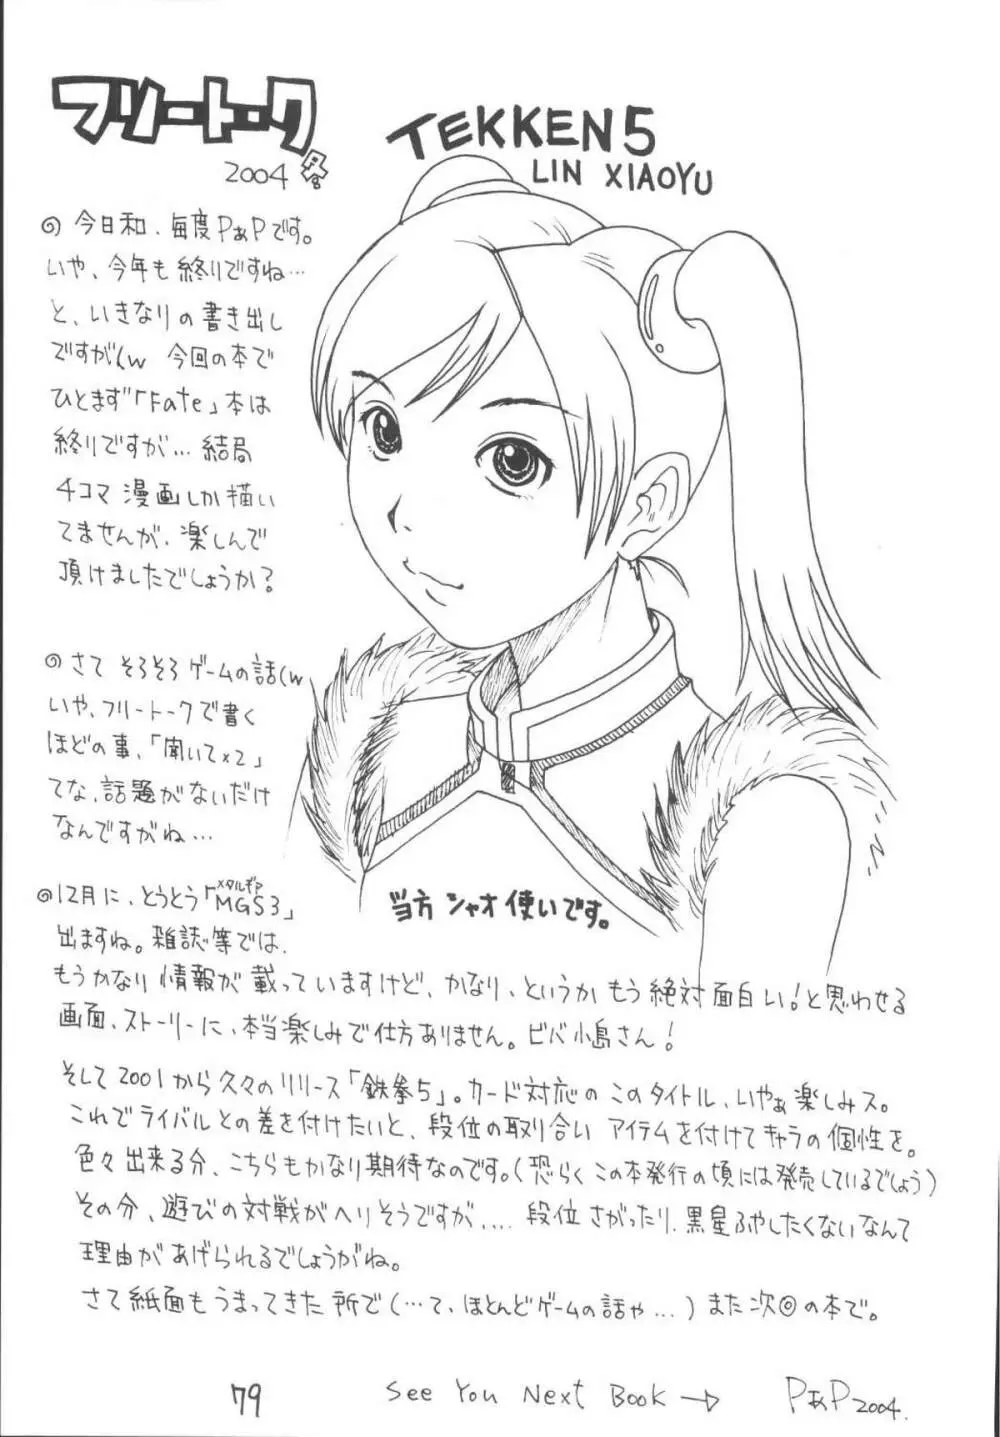 フリートーク
2004
TEKKEN5
LIN XIAOYU
今日和、毎度PぁPです。
いや、今年も終りですね…
と、いきなりの書き出し
ですが(w 今回の本で
ひとまず「Fate」本は
終りですが…結局
4コマ漫画しか描い
てませんが、楽しんで
頂けましたでしょうか?
さて そろそろゲームの話(w
いや、フリートークで書く
ほどの事、「聞いて×2」
てな、話題がないだけ
なんですがね…
12月に、とうとう「MGS3」
メタルギア
出ますね。雑誌等では、
もうかなり情報が載っていますけど、かなり、というかもう絶対面白い!と思わせる
画面、ストーリーに、本当楽しみで仕方ありません。ビバ小島さん!
当方 シャオ使いです。
そして2001から久々のリリース「鉄拳5」。カード対応のこのタイトル、いやぁ楽しみス。
これでライバルとの差を付けたいと、段位の取り合い アイテムを付けてキャラの個性を。
色々出来る分、こちらもかなり期待なのです。(恐らくこの本発行の頃には発売しているでしょう)
その分、遊びの対戦がヘリそうですが、… 段位さがったり、黒星ふやしたくないなんて
理由があげられるでしょうがね。
さて紙面もうまってきた所で(…て、ほとんどゲームの話や…)また次◎の本で。
79
See You Next Book →
PぁP 2004.